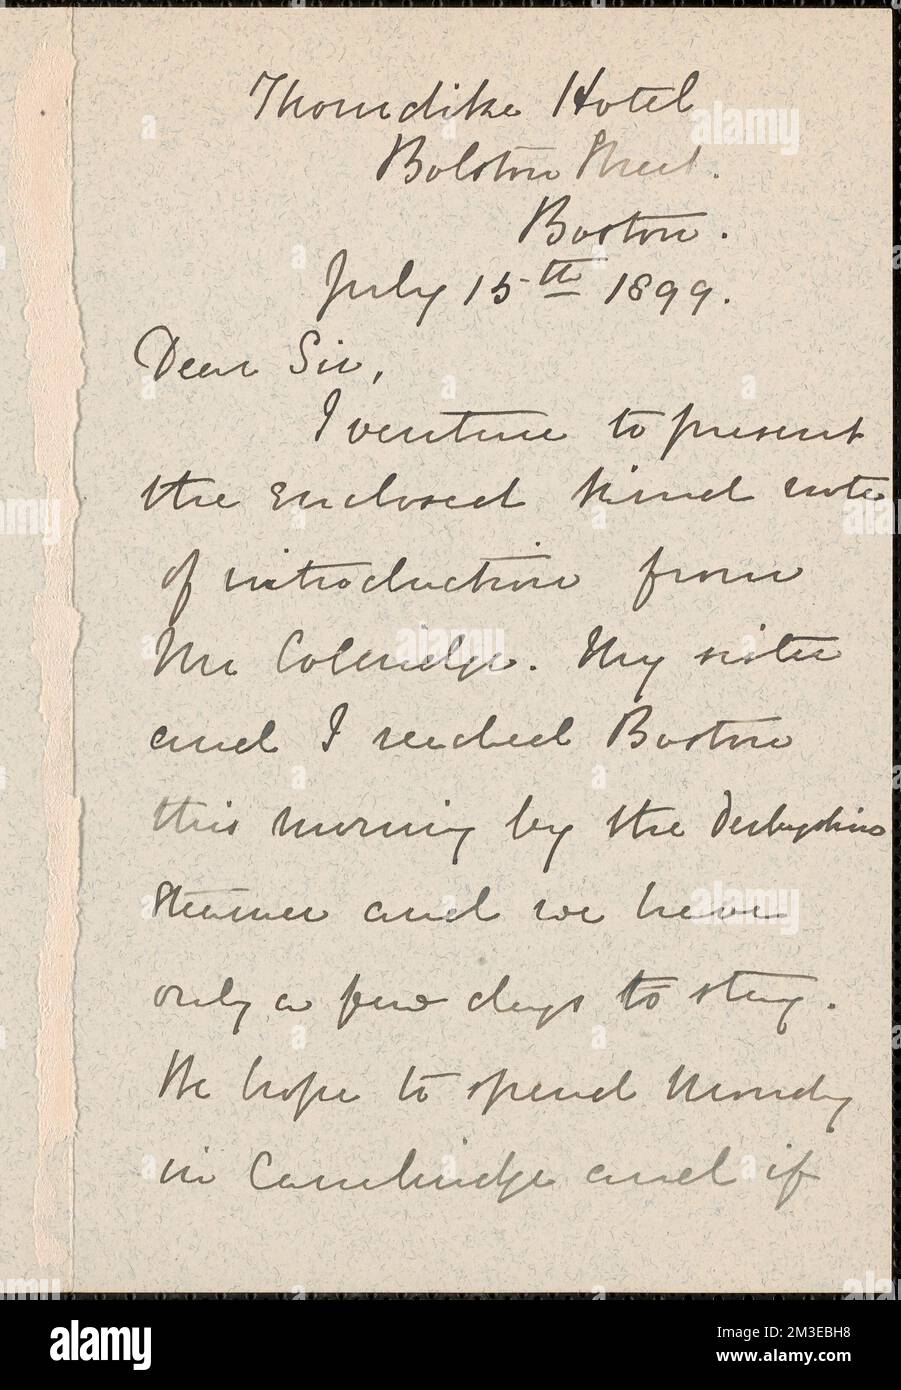 Thorndike Hotel
Bolston Street.
Boston.
July 15th 1899.
Dear Sir,
I venture to present
the enclosed kind note
of introduction from
Mr Coleridge. My sister
and I reached Boston
this morning by the Derbyshire
Steamer and we have
only a few days to stay.
We hope to spend Monday
in Cambridge and if
alamy
Image ID: 2M3EBH8
www.alamy.com